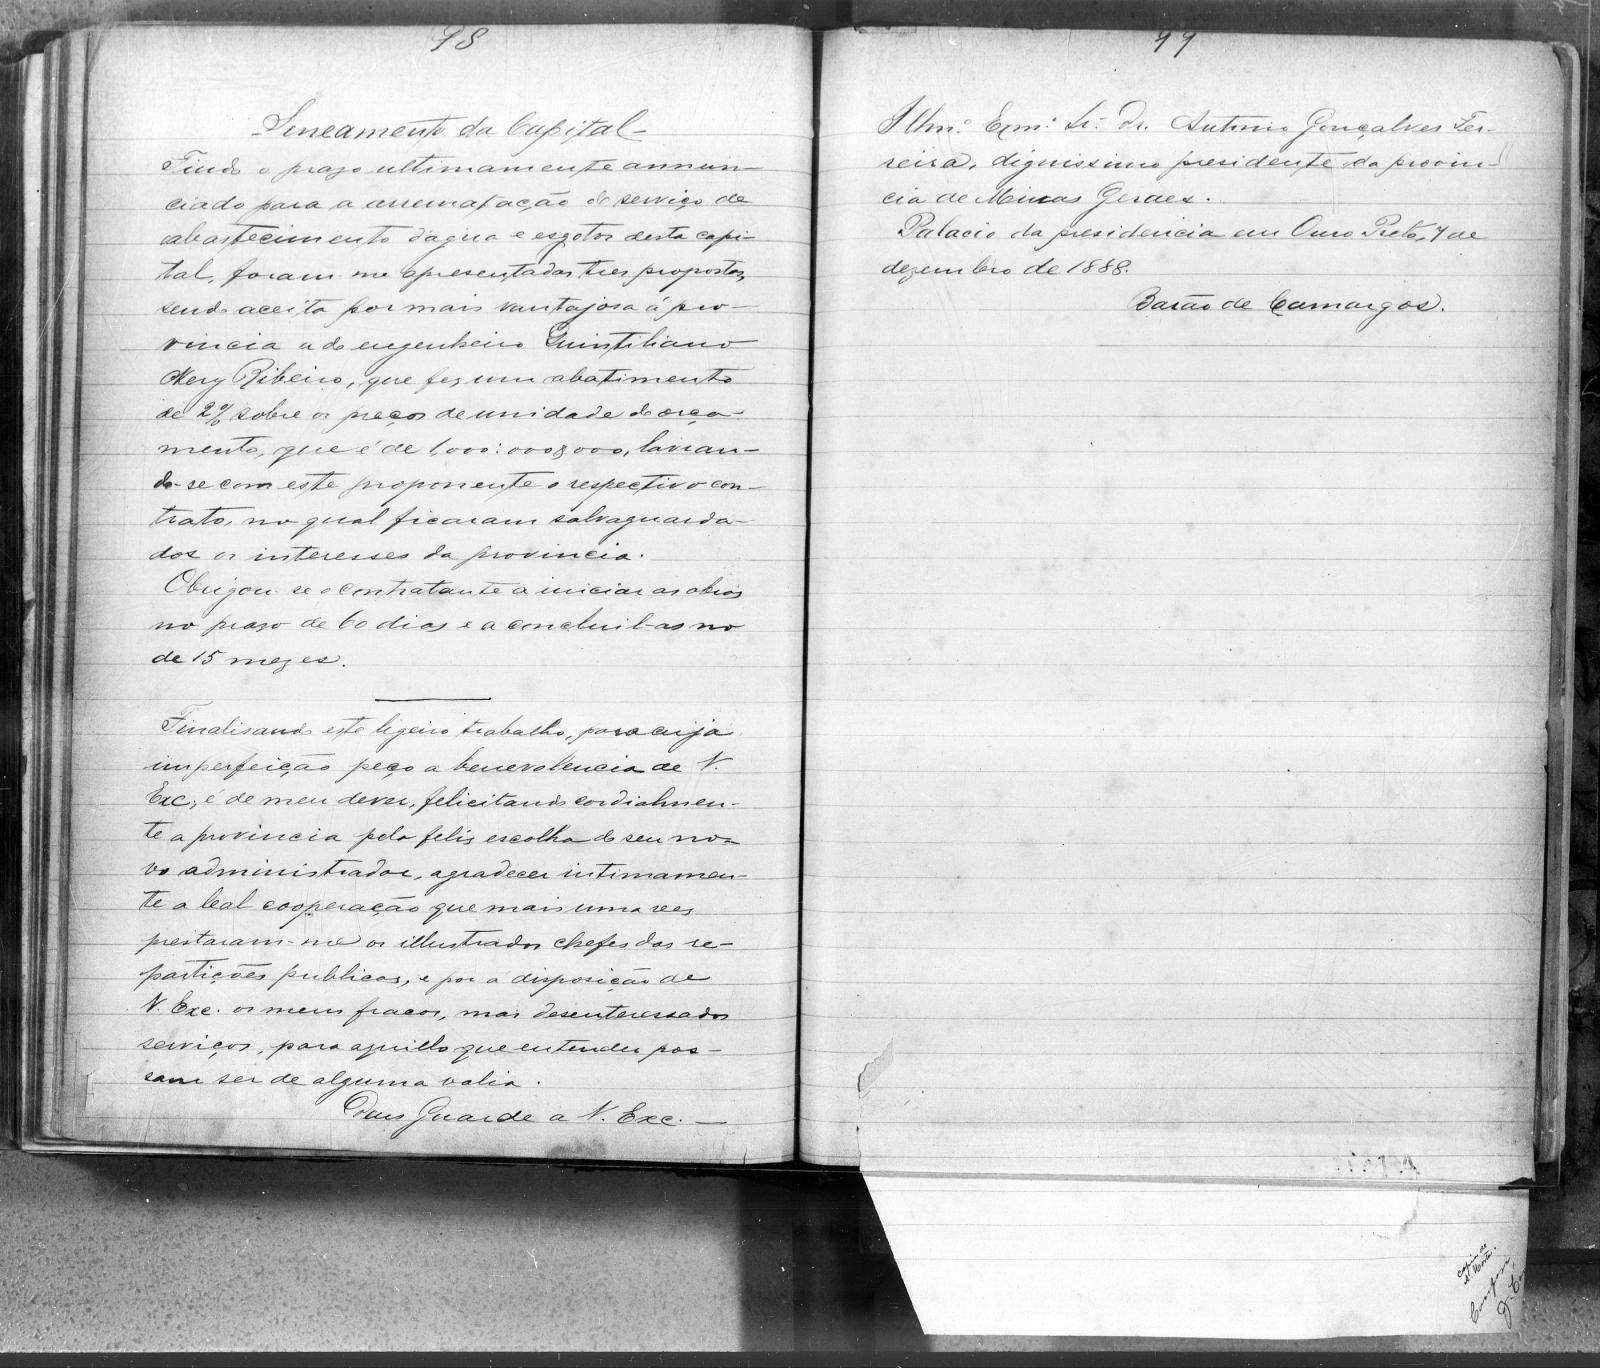 98
Saneamento da Capital
Findo o praso ultimamente annun-
ciado para a arrematação do serviço de
abastecimento d'agua e esgotos desta capi-
tal, foram-me apresentadas tres propostas,
sendo aceita por mais vantajosa á pro-
vincia a do engenheiro Quintiliano
Nery Ribeiro, que fez um abatimento
de 2% sobre os preços de unidade do orça-
mento, que é de 1,000:000$000, lavran-
do-se com este proponente o respectivo con-
trato, no qual ficaram salvaguarda-
dos os interesses da provincia.
Obrigou-se o contratante a iniciar as obras
no praso de 60 dias e a concluil-as no
de 15 mezes.
Finalisando este ligeiro trabalho, para cuja
imperfeição peço a benevolencia de V.
Exc., é de meu dever, felicitando cordialmen-
te a provincia pela felis escolha do seu no-
vo administrador, agradecer intimamen-
te a leal cooperação que mais uma vez
prestaram-me os illustrados chefes das re-
partições publicas, e por á disposição de
V. Exc. os meus fracos, mas desenteressados
serviços, para aquillo que entender pos-
sam ser de alguma valia.
Deus Guarde a V. Exc. —
99
Illm.º Exm.º Sr. Dr. Antonio Gonçalves Fer-
reira, dignissimo presidente da provin-
cia de Minas Geraes.
Palacio da presidencia em Ouro Preto, 7 de
dezembro de 1888.
Barão de Camargos.